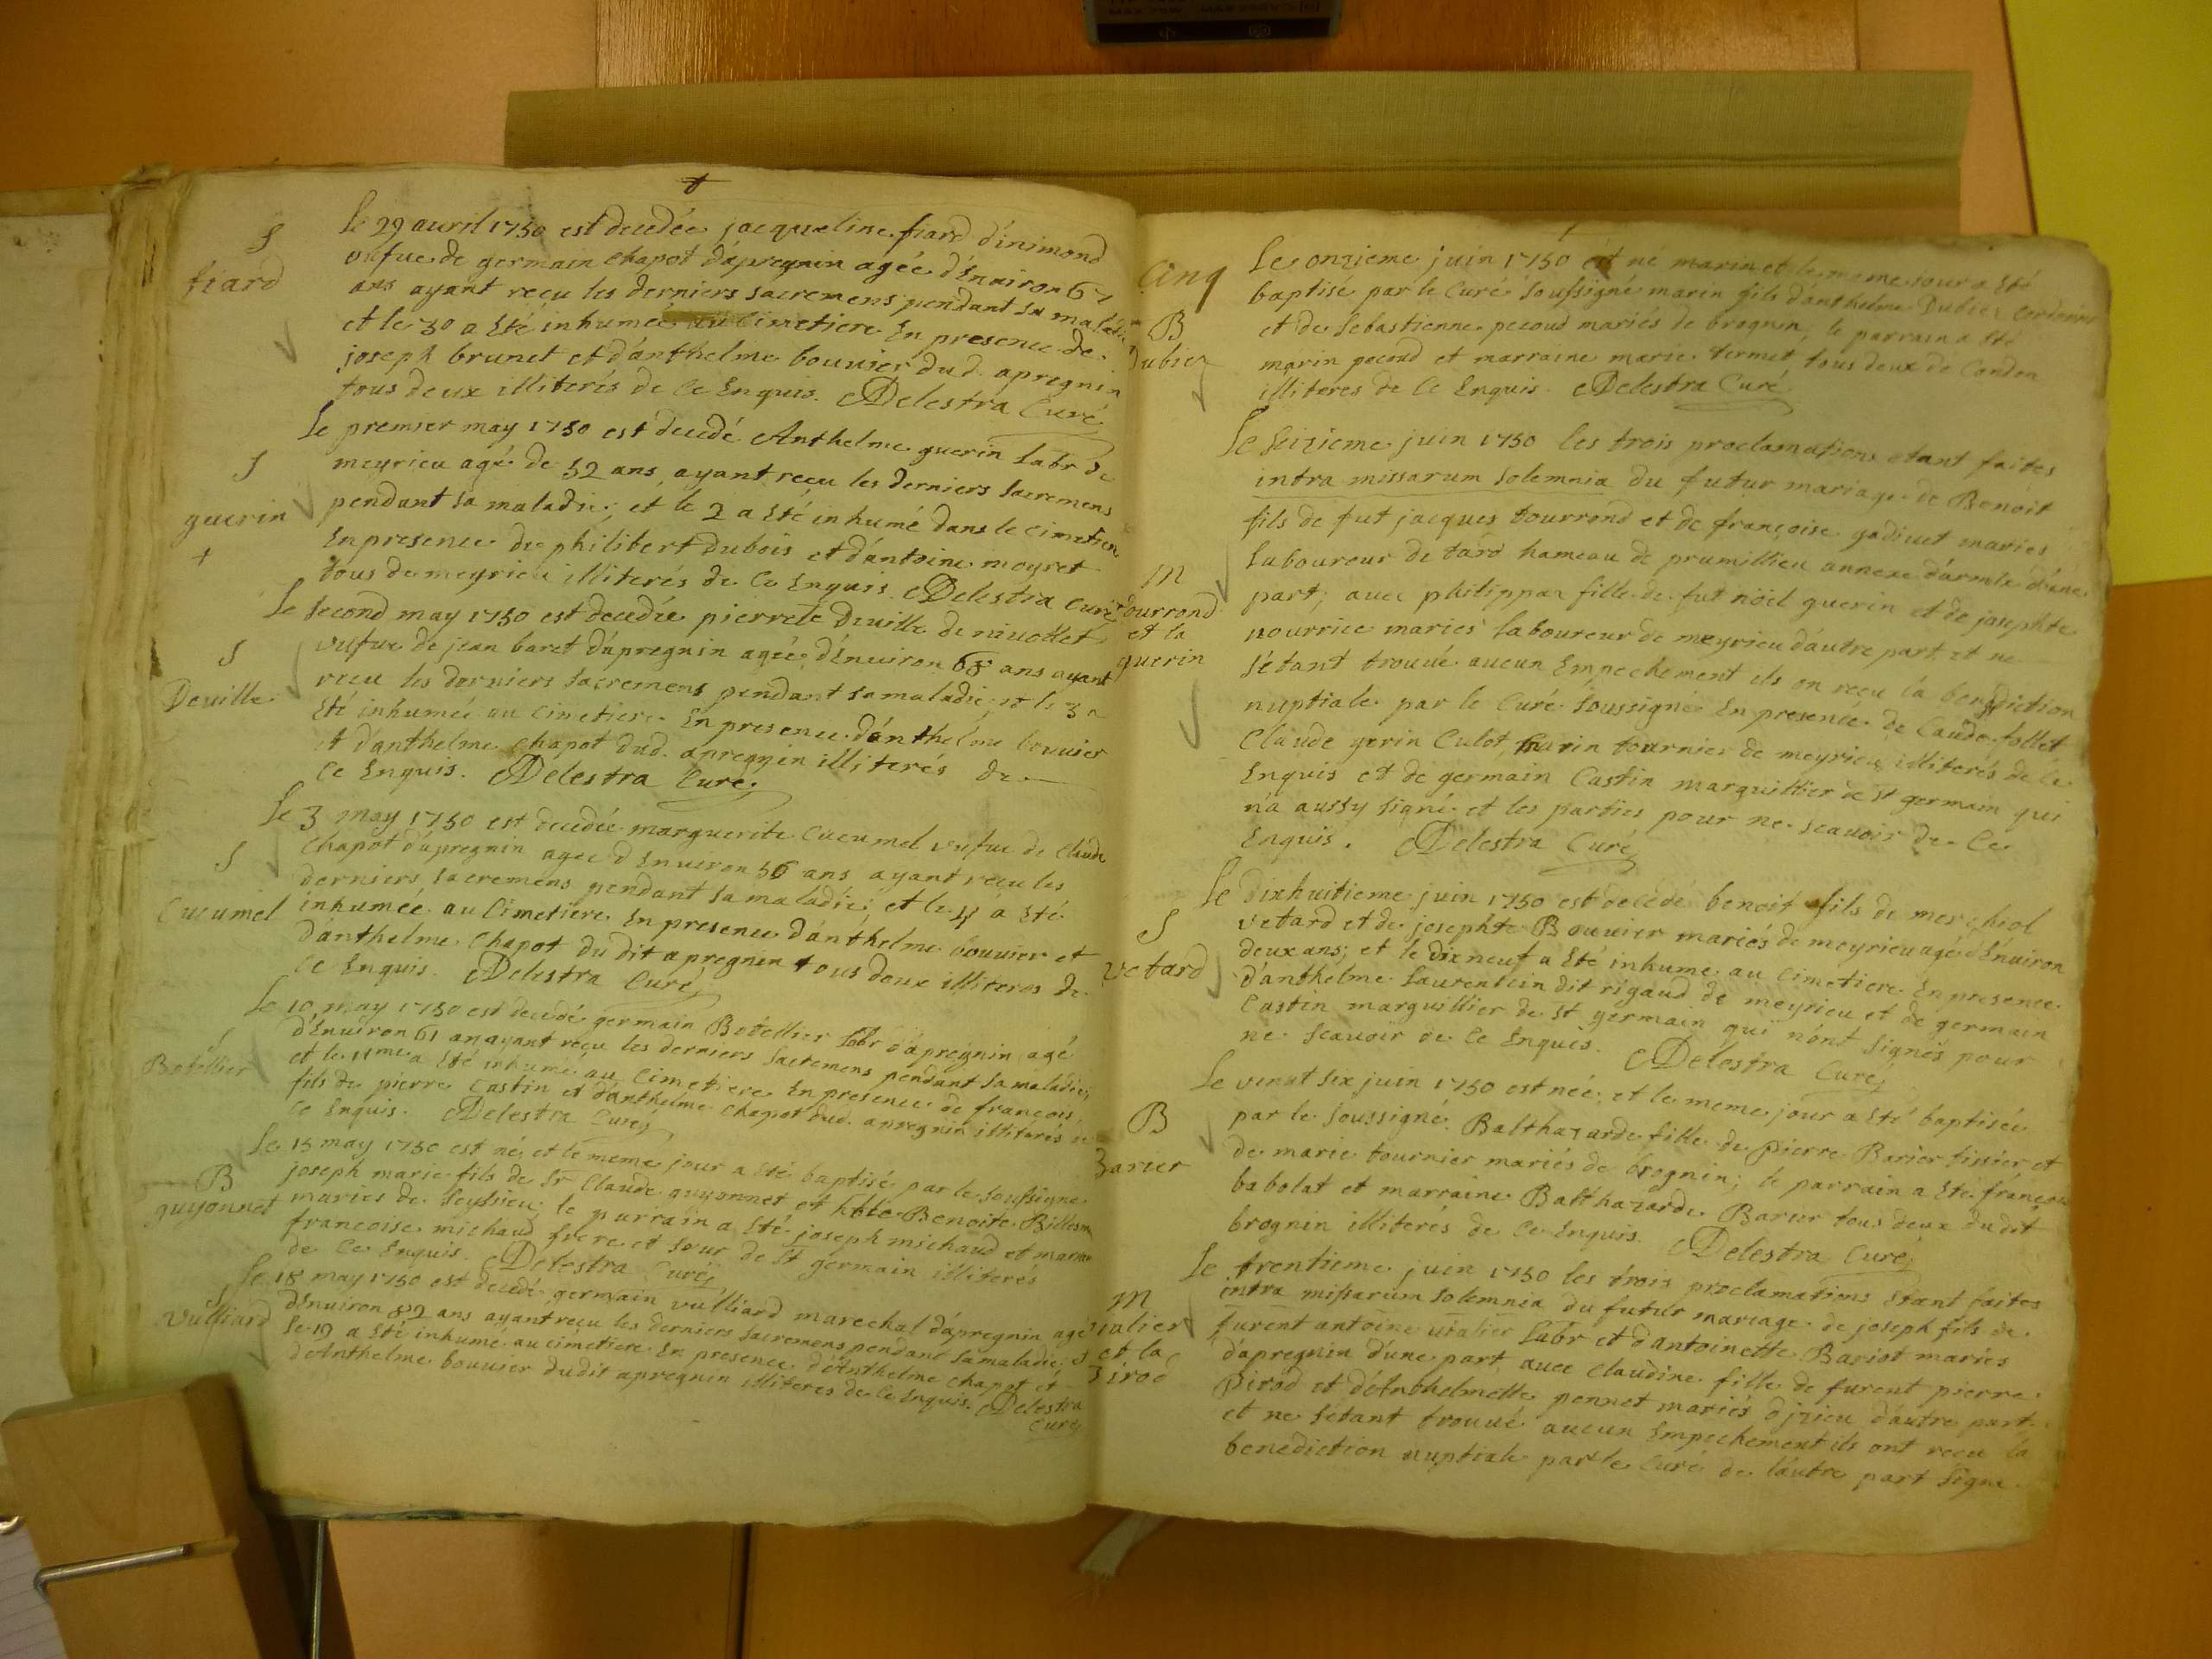 S
fiard
Le 29 avril 1750 est decedée jacqueline fiard d'inimond
vefue de germain chapot d'apregnin agée d'Enuiron
ans ayant reçu les derniers sacremens pendant sa maladie
et le 30 a Eté inhumée au Cimetiere En presence de
joseph brunet et d'anthelme bouuier dud. apregnin
tous deux illiterés de Ce Enquis. Delestra Curé
S
guerin
+
Le premier may 1750 est decedé Anthelme guerin labr de
meyrieu agé de 52 ans, ayant reçu les derniers sacremens
pendant sa maladie; et le 2 a Eté inhumé dans le cimetiere
En presence de philibert Dubois et d'antoine meyret
tous de meyrieu illiterés de Ce Enquis. Delestra Curé
S
Deuille
Le second may 1750 est decedée pierrete Deuille de niuollet
vefue de jean baret d'apregnin agée d'Enuiron 68 ans ayant
reçu les derniers sacremens pendant sa maladie; et le 3 a
Eté inhumée au Cimetiere En presence d'anthelme bouuier
et d'anthelme chapot dud. apregnin illiterés de
Ce Enquis. Delestra Curé
S
Cucumel
Le 3 may 1750 est decedée marguerite Cucumel vefue de Claude
Chapot d'apregnin agée d'Enuiron 56 ans ayant reçu les
derniers sacremens pendant sa maladie; et le 4 a Eté
inhumée au Cimetiere En presence d'anthelme bouuier et
d'anthelme Chapot du dit apregnin tous deux illiteres de
Ce Enquis. Delestra Curé
S
Botellier
Le 10 may 1750 est decedé germain Botellier labr d'apregnin agé
d'Enuiron 61 an ayant reçu les derniers sacremens pendant sa maladie;
et le 11me a Eté inhumé au Cimetiere En presence de francois
fils de pierre Castin et d'anthelme Chapot dud. apregnin illiterés de
Ce Enquis. Delestra Curé
B
guyonnet
Le 15 may 1750 est né, et le meme jour a Eté baptisé par le soussigné
joseph marie fils de Sr Claude guyonnet et Benoite
maries de Seyssieu; le parrain a Eté joseph michaud et marraine
francoise michaud frere et sœur de St germain illiterés
de Ce Enquis. Delestra Curé
S
vulliard
Le 18 may 1750 est decedé germain vulliard marechal d'apregnin agé
d'Enuiron 82 ans ayant reçu les derniers sacremens pendant sa maladie; et
le 19 a Eté inhumé au cimetiere En presence d'Anthelme Chapot et
d'Anthelme bouuier dudit apregnin illiteres de Ce Enquis. Delestra
Curé
Cinq
B
Dubiez
Le onzieme juin 1750 est né marin et le meme jour a Eté
baptise par le Curé soussigné marin fils d'anthelme Dubiez Cordonier
et de Sebastienne pecoud mariés de brognin; le parrain a Eté
marin pecoud et marraine marie termet tous deux de Condon
illiteres de Ce Enquis. Delestra Curé
m
tourrond
et la
guerin
Le Seizieme juin 1750 les trois proclamations etant faites
intra missarum solemnia du futur mariage de Benoit
fils de fut jacques tourrond et de françoise gadiuet maries
laboureur de taro hameau de prumillieu annexe d'armix d'une
part; auec philippaz fille de fut nöel guerin et de josephte
nourrice maries laboureur de meyrieu d'autre part et ne
s'étant trouué aucun Empechement ils on reçu la benediction
nuptiale par le Curé soussigné En presence de Caude follet
Claude gerin Culot, marin tournier de meyrieu illiterés de Ce
Enquis et de germain Castin marguillier de St germain qui
n'a aussy signé et les parties pour ne scauoir de Ce
Enquis. Delestra Curé
S
vetard
Le dixhuitieme juin 1750 est decedé benoit fils de merchiol
vetard et de josephte Bouuier mariés de meyrieu agé d'Enuiron
deux ans; et le dixneuf a Eté inhumé au Cimetiere En presence
d'anthelme Laurentein dit rigaud de meyrieu et de germain
Castin marguillier de St germain qui n'ont signés pour
ne scauoir de Ce Enquis. Delestra Curé
B
Barier
Le vingt six juin 1750 est née, et le meme jour a Eté baptisée
par le soussigné Balthazarde fille de pierre Barier tissier et
de marie tournier mariés de brognin; le parrain a Eté françois
babolat et marraine Balthazarde Barier tous deux du dit
brognin illiterés de Ce Enquis. Delestra Curé
m
uialier
et la
pirod
Le trentieme juin 1750 les trois proclamations Etant faites
intra missarum solemnia du futur mariage de joseph fils de
furent antoine uialier labr et d'antoinette Bariot maries
d'apregnin d'une part, auec Claudine fille de furent pierre
pirod et d'Anthelmette pennet mariés d'jzieu d'autre part
et ne s'etant trouué aucun Empechement ils ont recu la
benediction nuptiale par le Curé de l'autre part signé